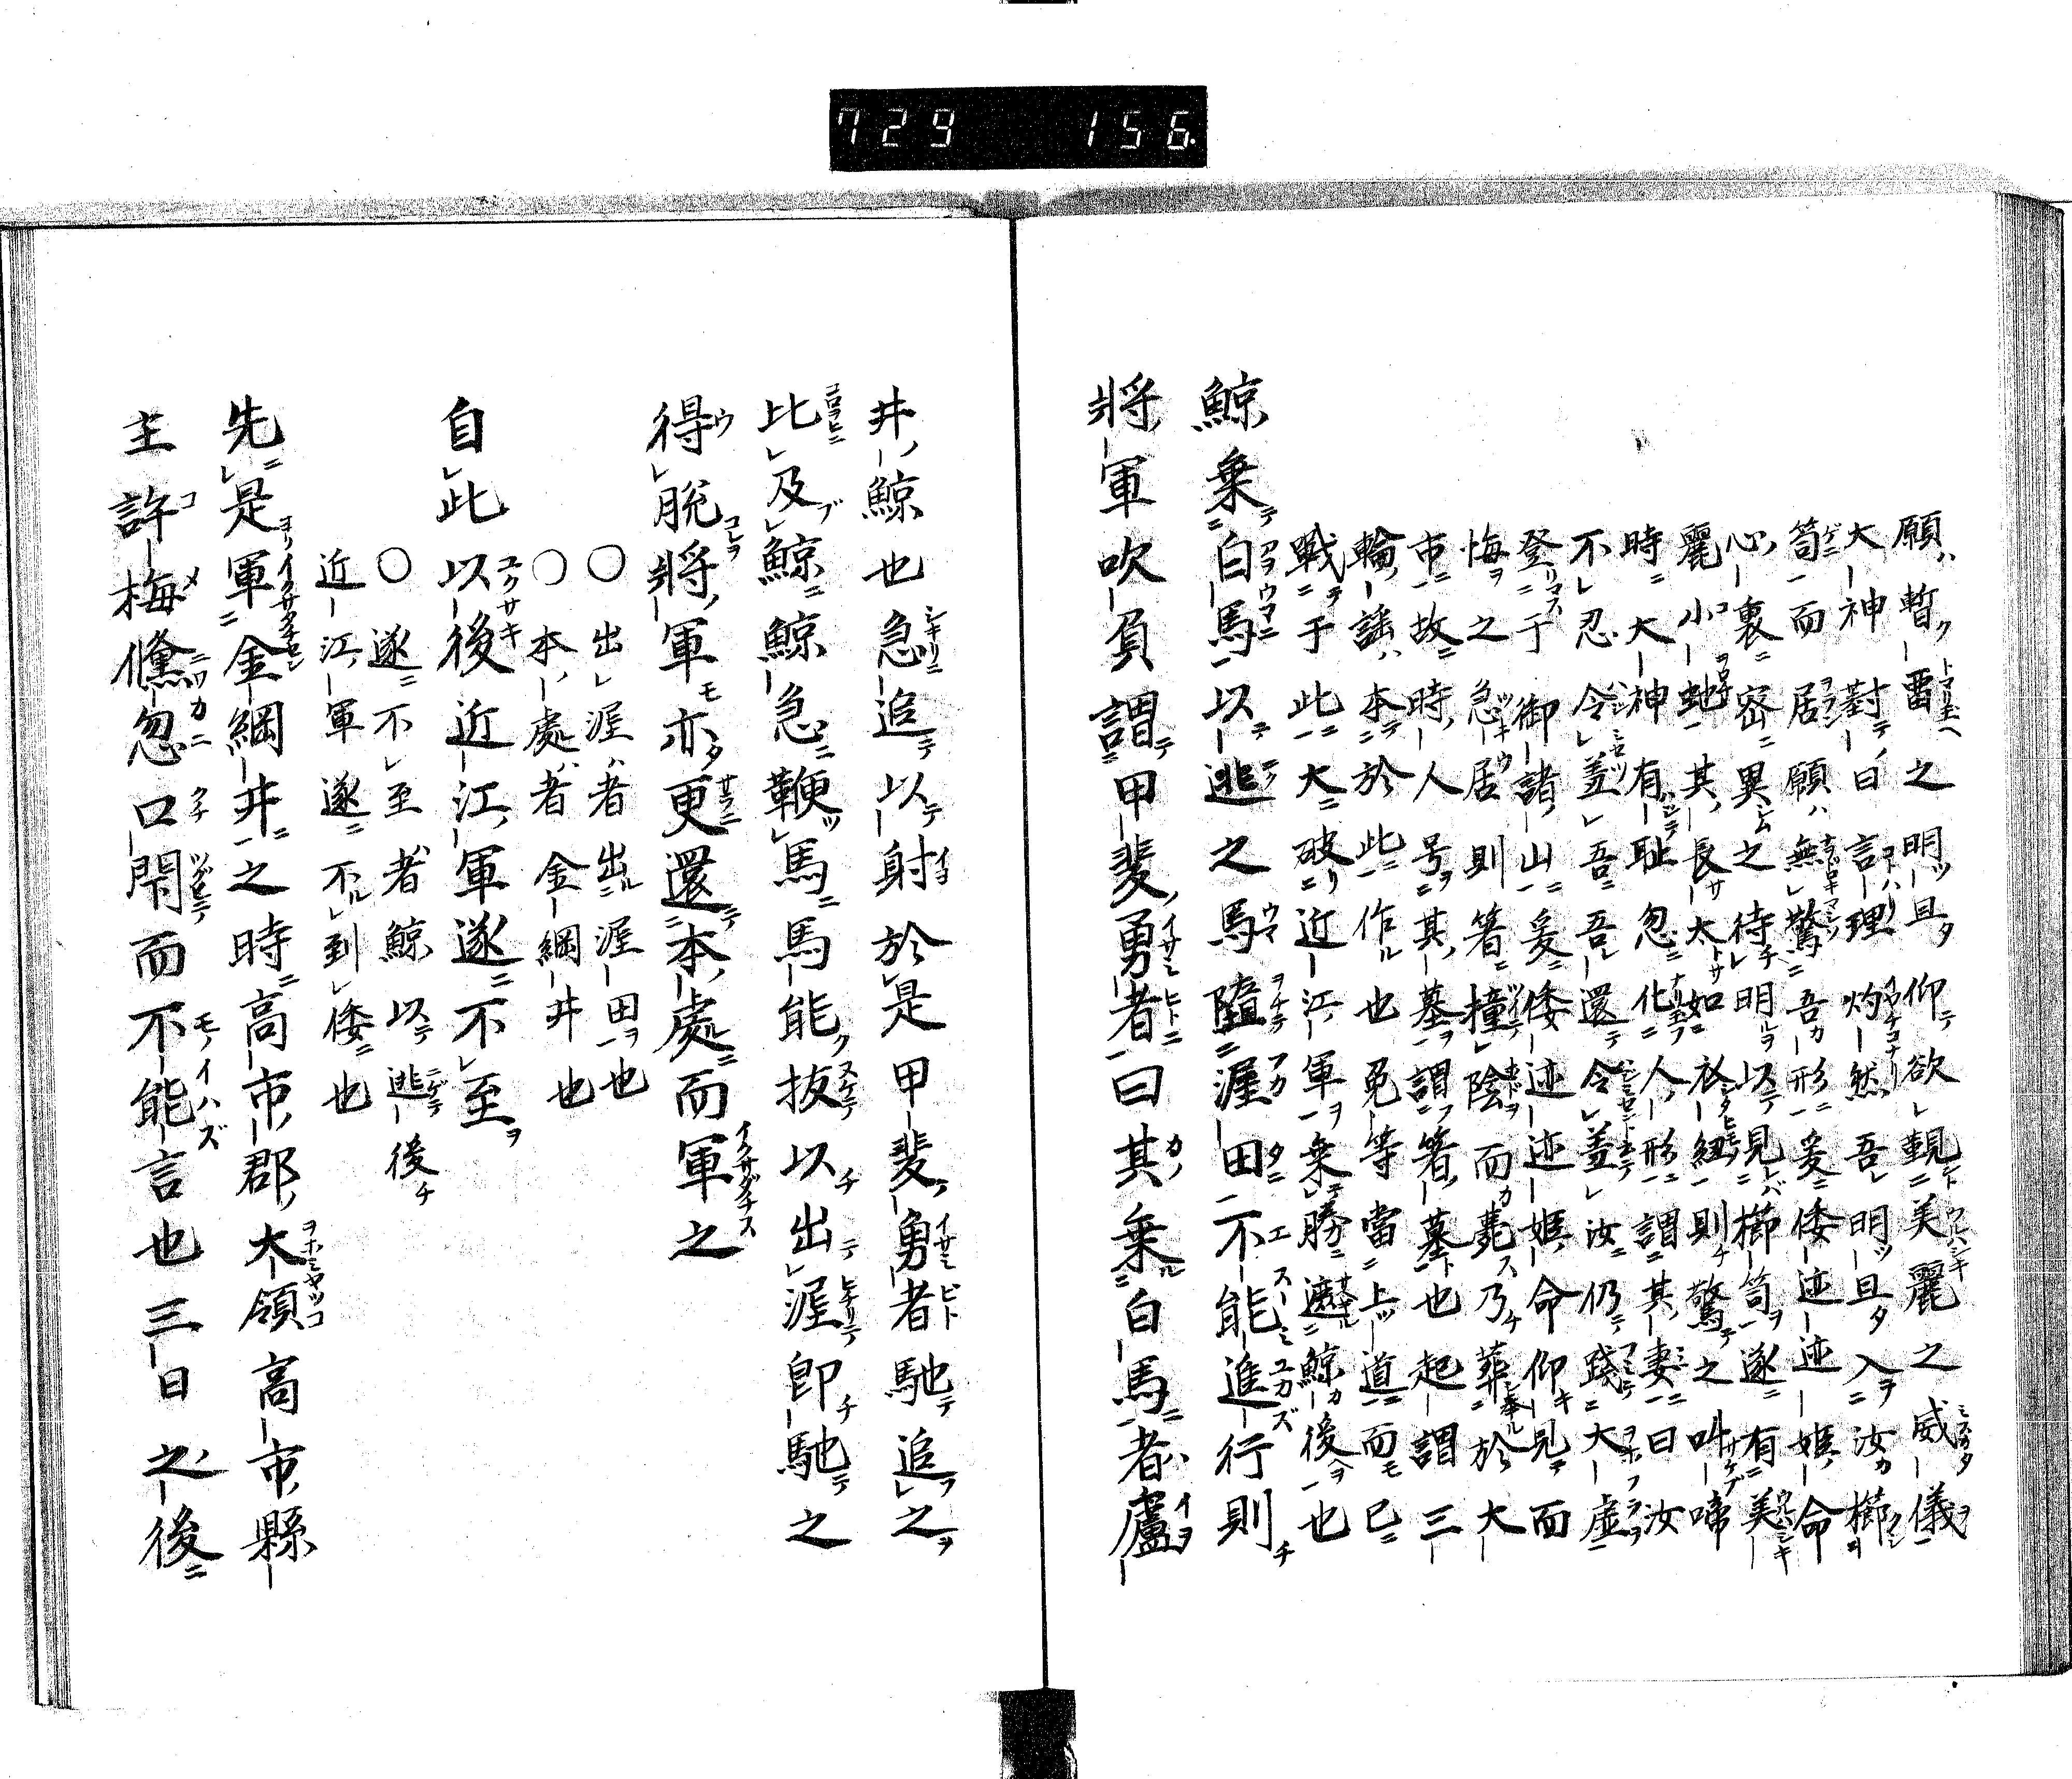 729 156.
願暫留之明旦仰欲覲美麗之威儀
大神對曰言理灼然吾明旦入汝櫛
笥而居願無驚吾形爰倭迹迹姫命
心裏密異之待明以見櫛笥遂有美
麗小蛇其長太如衣紐則驚之叫啼
時大神有耻忽化人形謂其妻曰汝
不忍令羞吾吾還令羞汝仍踐大虚
登于御諸山爰倭迹迹姫命仰見而
悔之急居則箸撞陰而薨乃葬於大
市故時人号其墓謂箸墓也起謂三
輪謡本於此作也兎等當上道而已
戰于此大破近江軍乗勝遮鯨後也
鯨乗白馬以逃之馬墮渥田不能進行則
將軍吹負謂甲斐勇者曰其乗白馬者廬
井鯨也急追以射於是甲斐勇者馳追之
比及鯨鯨急鞭馬馬能抜以出渥即馳之
得脱將軍亦更還本處而軍之
〇出渥者出渥田也
〇本處者金綱井也
自此以後近江軍遂不至
〇遂不至者鯨以逃後
近江軍遂不到倭也
先是軍金綱井之時高市郡大領高市縣
主許梅儵忽口閇而不能言也三日之後